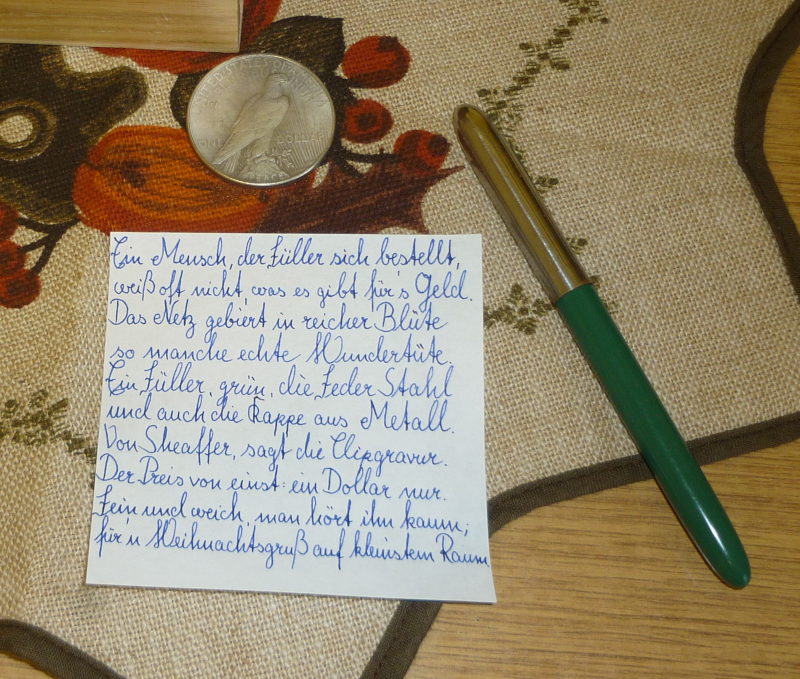 Ein Mensch, der Füller sich bestellt,
weiß oft nicht, was es gibt für's Geld.
Das Netz gebiert in reicher Blüte
so manche echte Wundertüte.
Ein Füller, grün, die Feder Stahl
und auch die Kappe aus Metall.
Von Sheaffer, sagt die Clipgravur.
Der Preis von einst: ein Dollar nur.
Fein und weich, man hört ihn kaum;
für'n Weihnachtsgruß auf kleinstem Raum